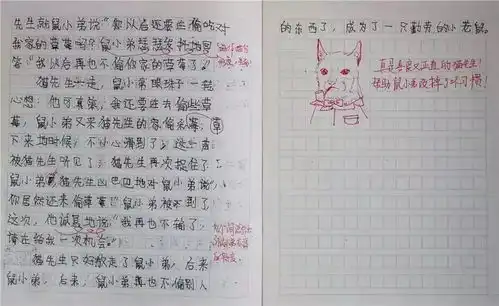 先生就鼠小弟说"你以后还要来偷吃
我家的草莓吗?鼠小弟瑟瑟发抖地回
答"我以后再也不偷你家的草莓了"
猫先生一走,鼠小弟眼珠子一转
心想:他可真笨,我还要去偷些草
莓,鼠小弟又来猫先生的家偷采莓,草
下来地时候,不小心滑到了,这些者
被猫先生听见了,猫先生再次捉住了
鼠小弟,猫先生凶巴巴地对鼠小弟说"
你居然还来偷草莓"鼠小弟被吓到了
这次,他诚恳地说"我再也不偷了,
请在给我一次机会。"
猫先生只好放走了鼠小弟,后来
鼠小弟,后来,鼠小弟再也不偷别人
的东西了,成为了一只勤劳的小老鼠。
真是善良又正直的猫先生!
帮助鼠小弟改掉了坏习惯!